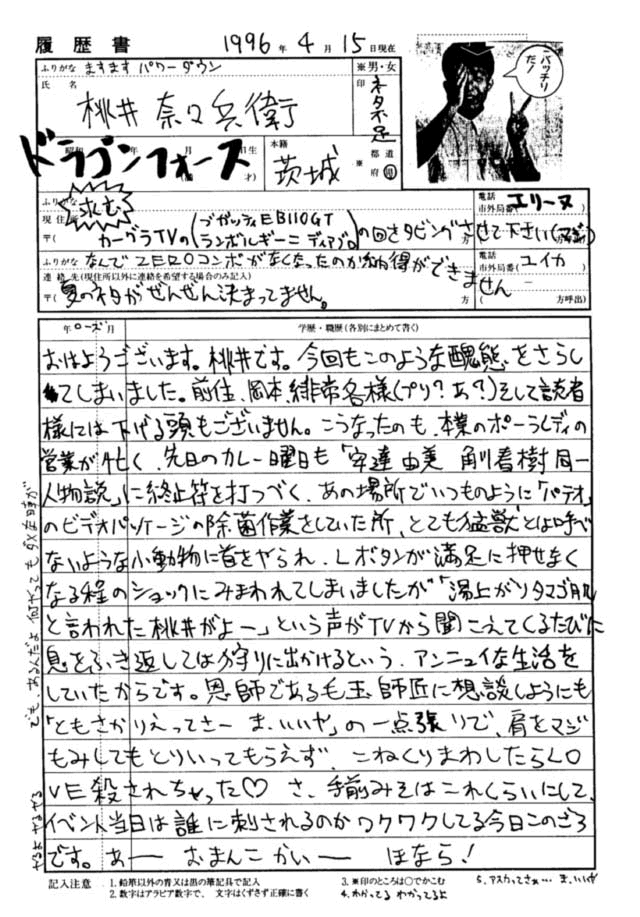 履歴書 1996年4月15日現在
ふりがな ますます パワーダウン ※男・女
氏名 桃井 奈々兵衛 印 ネタ不足
ドラゴンフォース
昭和 年 月 日生
(満 才)
本籍 茨城 ※ 都道府県
バッチリだ!
ふりがな 求む 電話 エリーヌ
市外局番( )
現住所
〒( カーグラTVの(ブガッティEB110GT ランボルギーニ ディアブロ)の回さダビングさせて下さい(マジ) 方呼出)
ふりがな なんでZEROコンボがなくなったのか納得ができません 電話 ユイカ
市外局番( )
連絡先(現住所以外に連絡を希望する場合のみ記入)
〒( 夏のネタがぜんぜん決まってません。 方 ( 方呼出)
年 ローズ 月 学歴・職歴(各別にまとめて書く)
おはようございます。桃井です。今回もこのような醜態をさらし
てしまいました。前住、岡本、緋常各様(プリ?あ?)そして読者
様には下げる頭もございません。こうなったのも、本業のポーラレディの
営業が忙く、先日のカレー曜日も「安達由美 角川春樹同一
人物説」に終止符を打つべく、あの場所でいつものように「パテオ」
のビデオパッケージの除菌作業をしていた所、とても猛獣とは呼べ
ないような小動物に首をやられ、Lボタンが満足に押せなく
なる程のショックにみまわれてしまいましたが「湯上がりタマゴ肌
と言われた桃井がよー」という声がTVから聞こえてくるたびに
息をふき返しては狩りに出かけるという、アンニュイな生活を
していたからです。恩師である毛玉師匠に想談しようにも
「ともさかりえってさー ま、いいや」の一点張りで、肩をマジ
もみしてもとりいってもらえず、こねくりまわしたらLO
VE殺されちゃった♡ さ、手前みそはこれくらいにして、
イベント当日は誰に刺されるのかワクワクしてる今日このごろ
です。あー おまんこ かいー ほなら!
でも、あるんだよ 何やっても ダメな時が
やるよ やるやる
記入注意 1. 鉛筆以外の青又は黒の筆記具で記入
2. 数字はアラビア数字で、文字はくずさず正確に書く
3. ※印のところは○でかこむ
4. わかってる わかってるよ
5. アスカってさぁ… ま、いいや